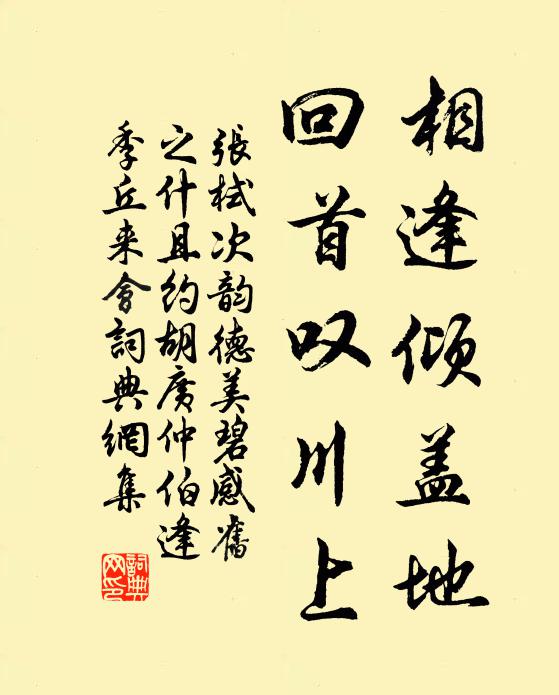 相逢倾盖地
回首叹川上
張栻次韵德美碧感舊
之什且约胡廣仲伯逢
季丘来會詞典網集
詞典网印